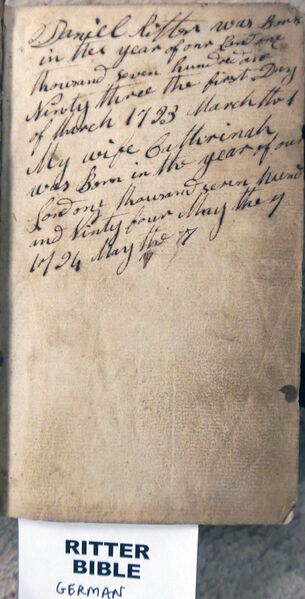 Daniel Ritter was Born
in the year of our Lord one
thousand seven hundred and
Ninty three the first Day
of March 1793 March the 1
My wife Cathrinah
was Born in the year of our
Lord one thousand seven hund
and Ninty four May the 7
1794 May the 7
RITTER
BIBLE
GERMAN